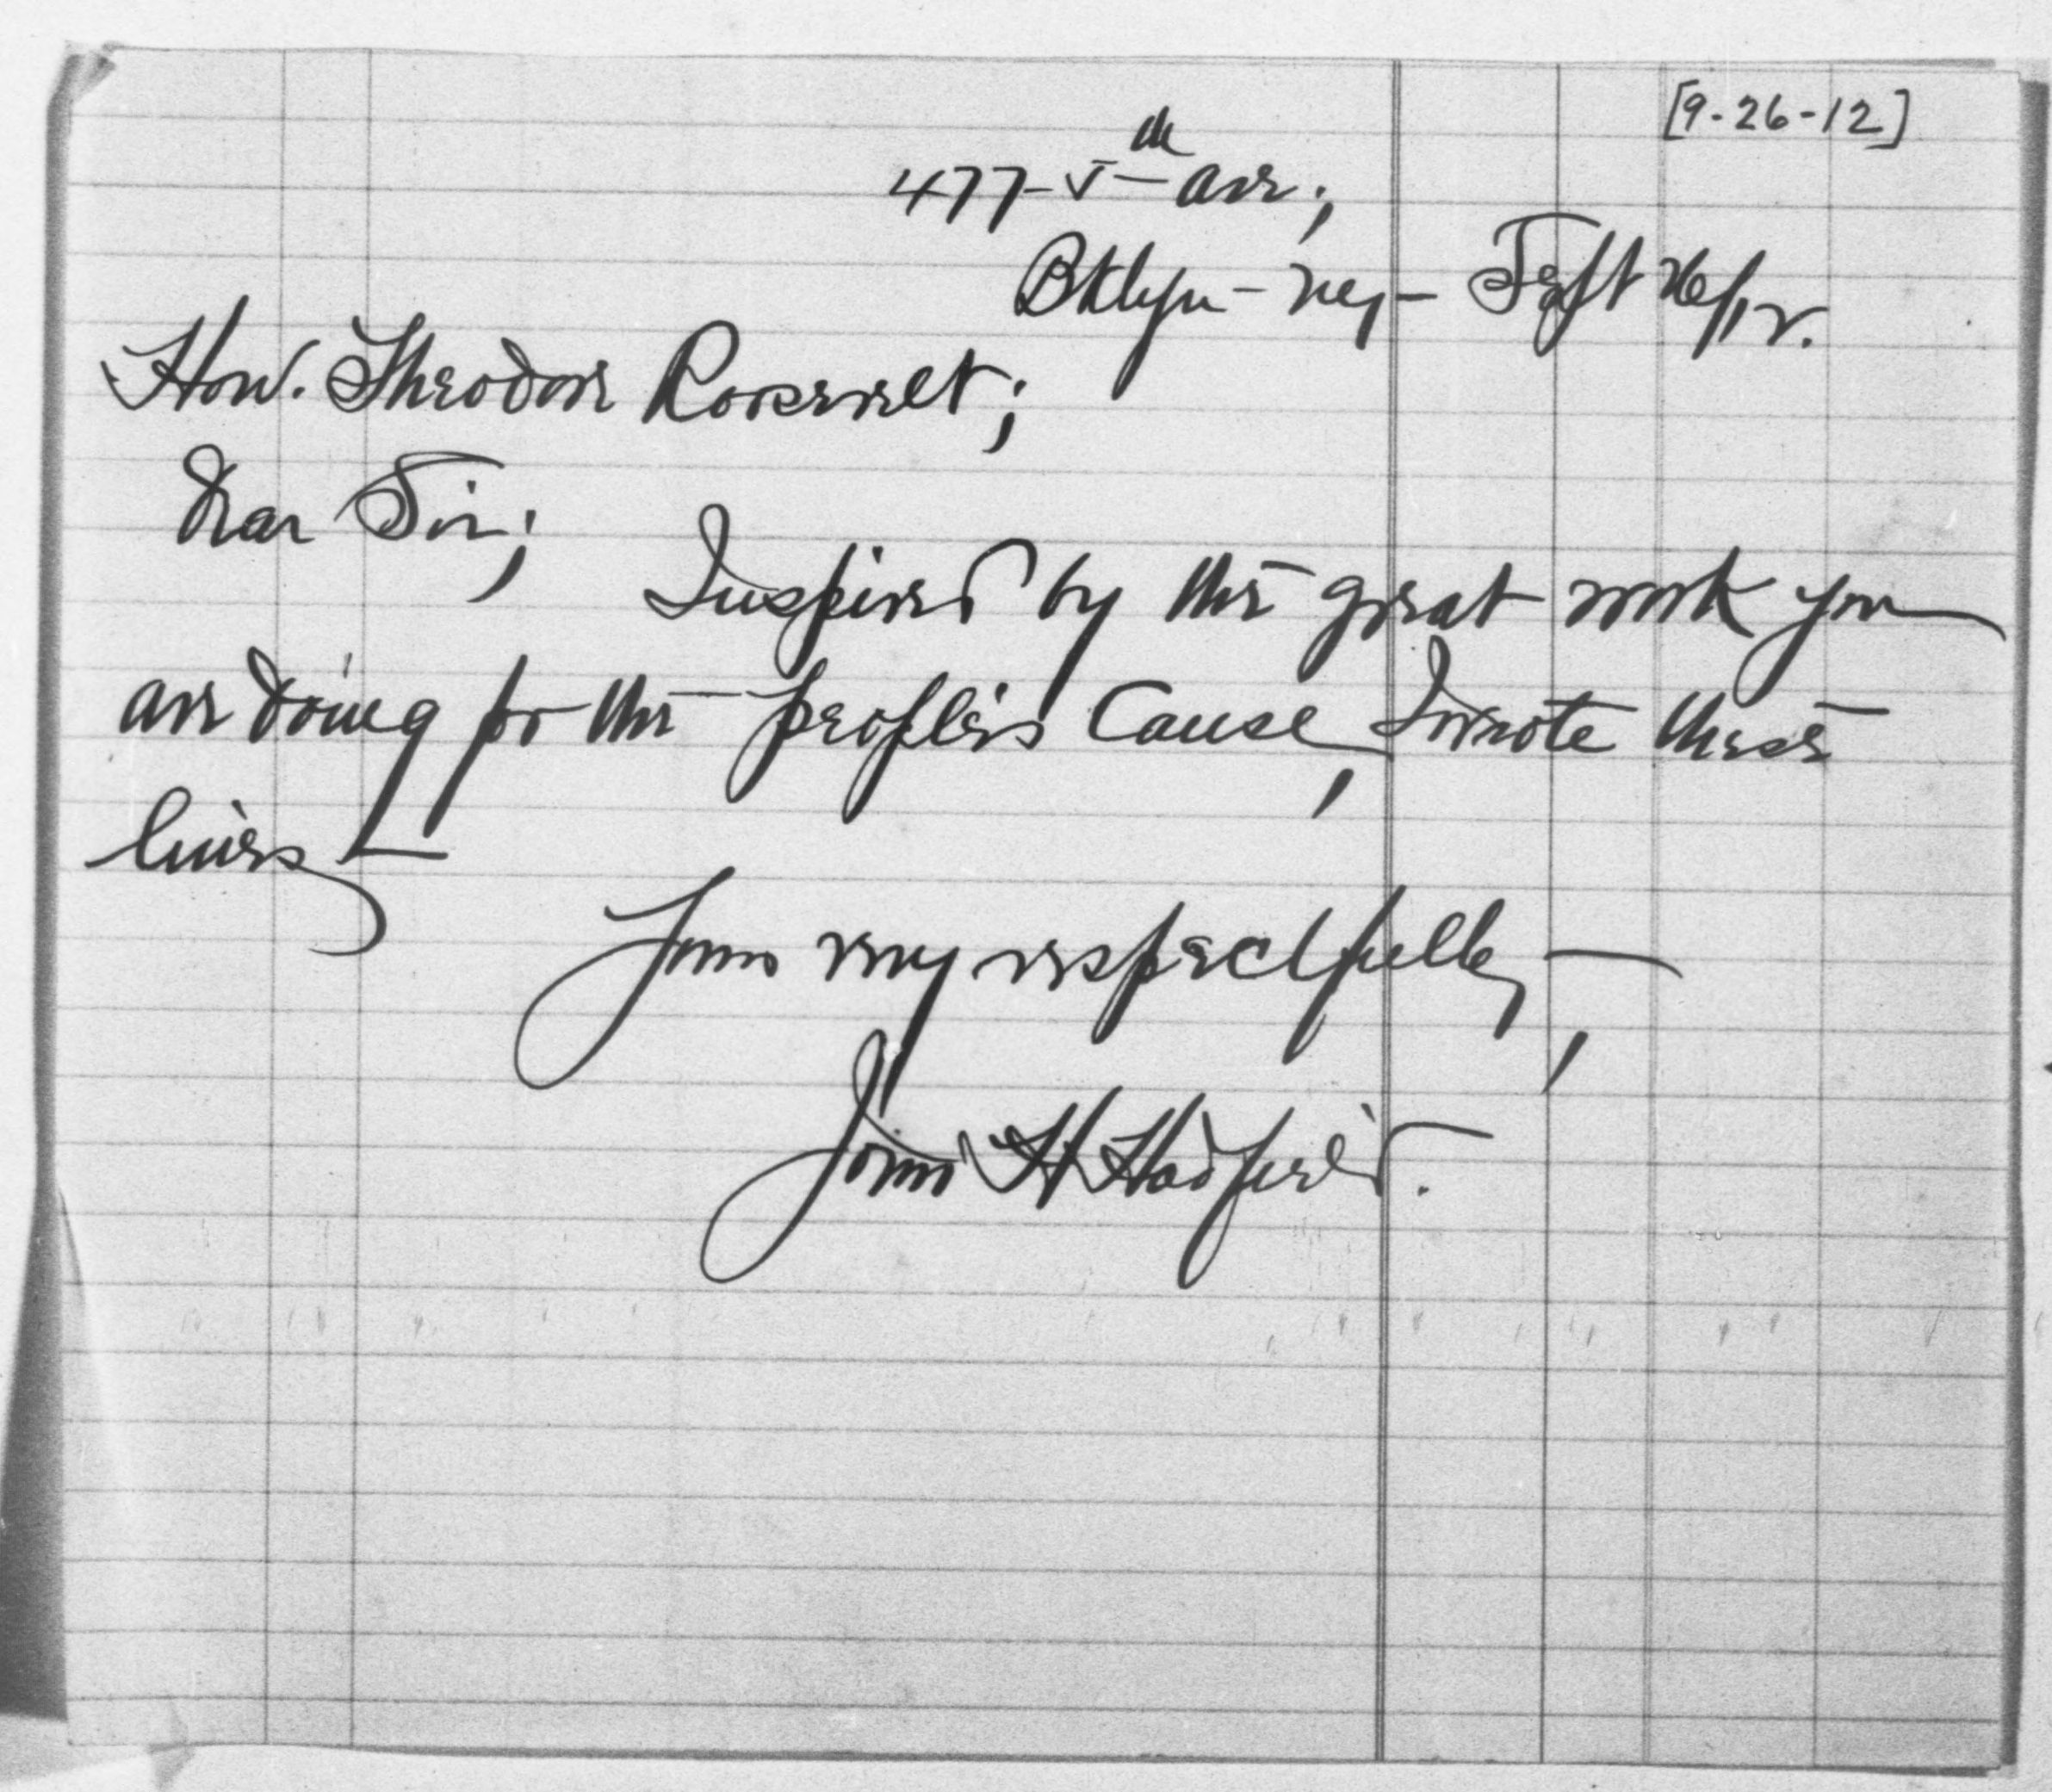 [9-26-12]
477-5th Ave.,
Bklyn - NY - Sept 26/12.
Hon. Theodore Roosevelt;
Dear Sir;
Inspired by the great work you
are doing for the people's Cause, I wrote these
lines,—
Yours very respectfully,—
John H Hadfield.